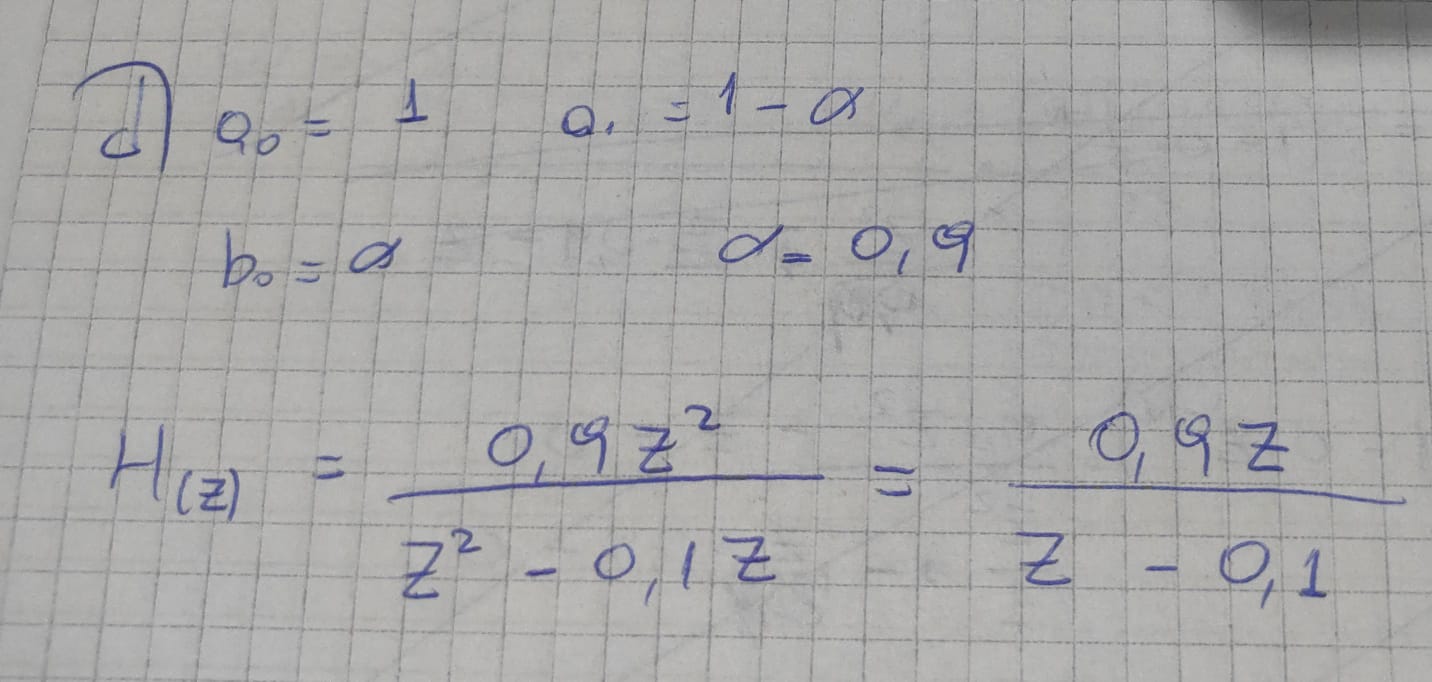 d) a₀ = 1 a₁ = 1 - α
b₀ = α α = 0,9
H(z) = 0,9z² / z² - 0,1z = 0,9z / z - 0,1